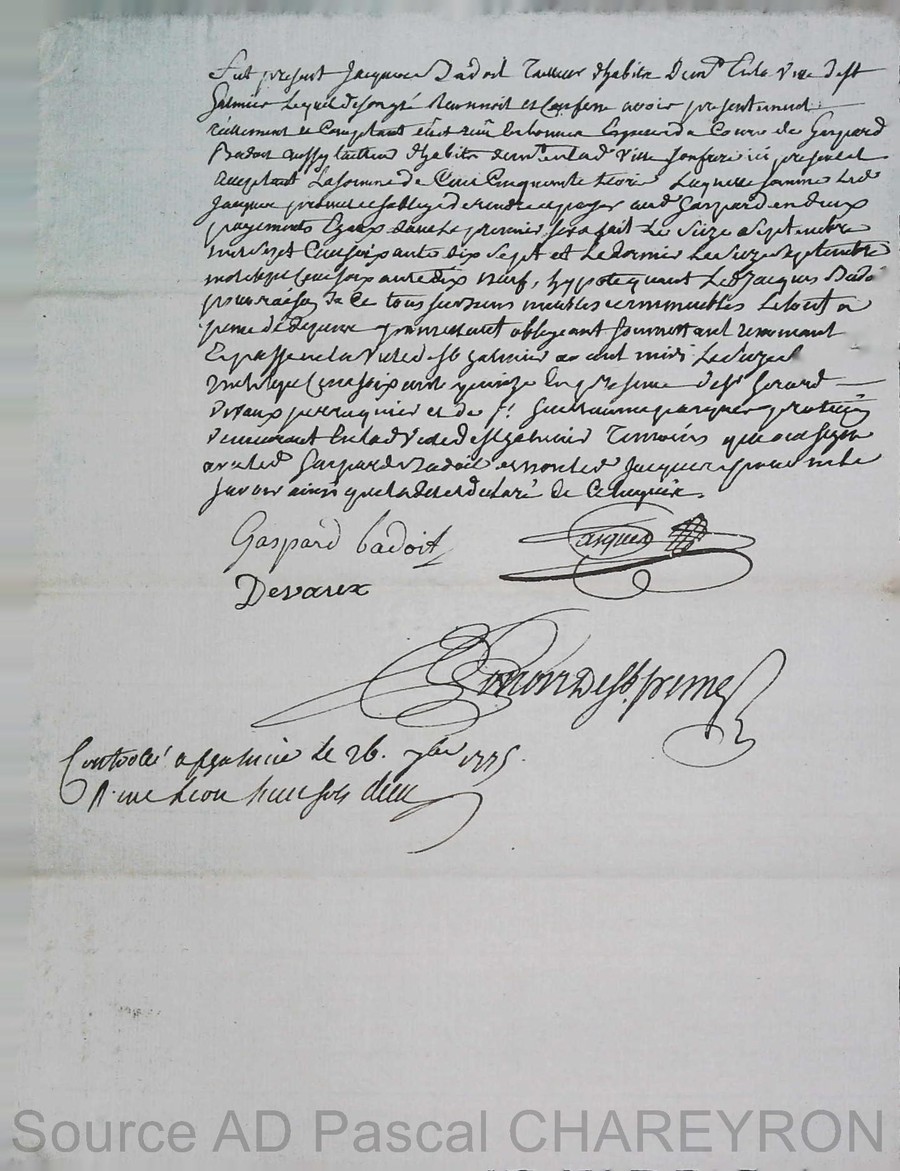 Fut présent Jacques Badoit Tailleur d'habits Demt En la Ville de St
Galmier Lequel de son gré Reconnoit et Confesse avoir présentement
réellement et Comptant été reçu en bonnes Especes de Cours de Gaspard
Badoit aussy tailleur d'habits demt en lad Ville son frere ici présent et
acceptant La somme de Cent Cinquante Livres Laquelle somme Led
Jacques promet et s'oblige de rendre et payer aud Gaspard en deux
payements Egaux dont Le premier sera fait Le Seize Septembre
mil sept Cent soixante dix sept et Le dernier Le Seize Septembre
mil sept Cent soixante dix neuf, hypotequant Led Jacques Bado
pour raison de Ce tous ses biens meubles et immeubles Le tout a
peine de depens promettant obligeant soumettant renonçant
Et passé en la Ville de St galmier avant midi Le Seize
mil sept Cent soixante quinze En présence de Sr
Devaux perruquier et de Sr Guillaume pasquier praticien
demeurant En lad Ville de St galmier Temoins qui ont signé
avec led Gaspard Badoit et non led Jacques pour ne le
savoir ainsi qu'il a declaré de Ce requis
Gaspard badoit
Pasquier
Devaux
Ponon De St. prime
Controllé a St galmier le 26. 7bre 1775.
R. une livre sols den
Source AD Pascal CHAREYRON